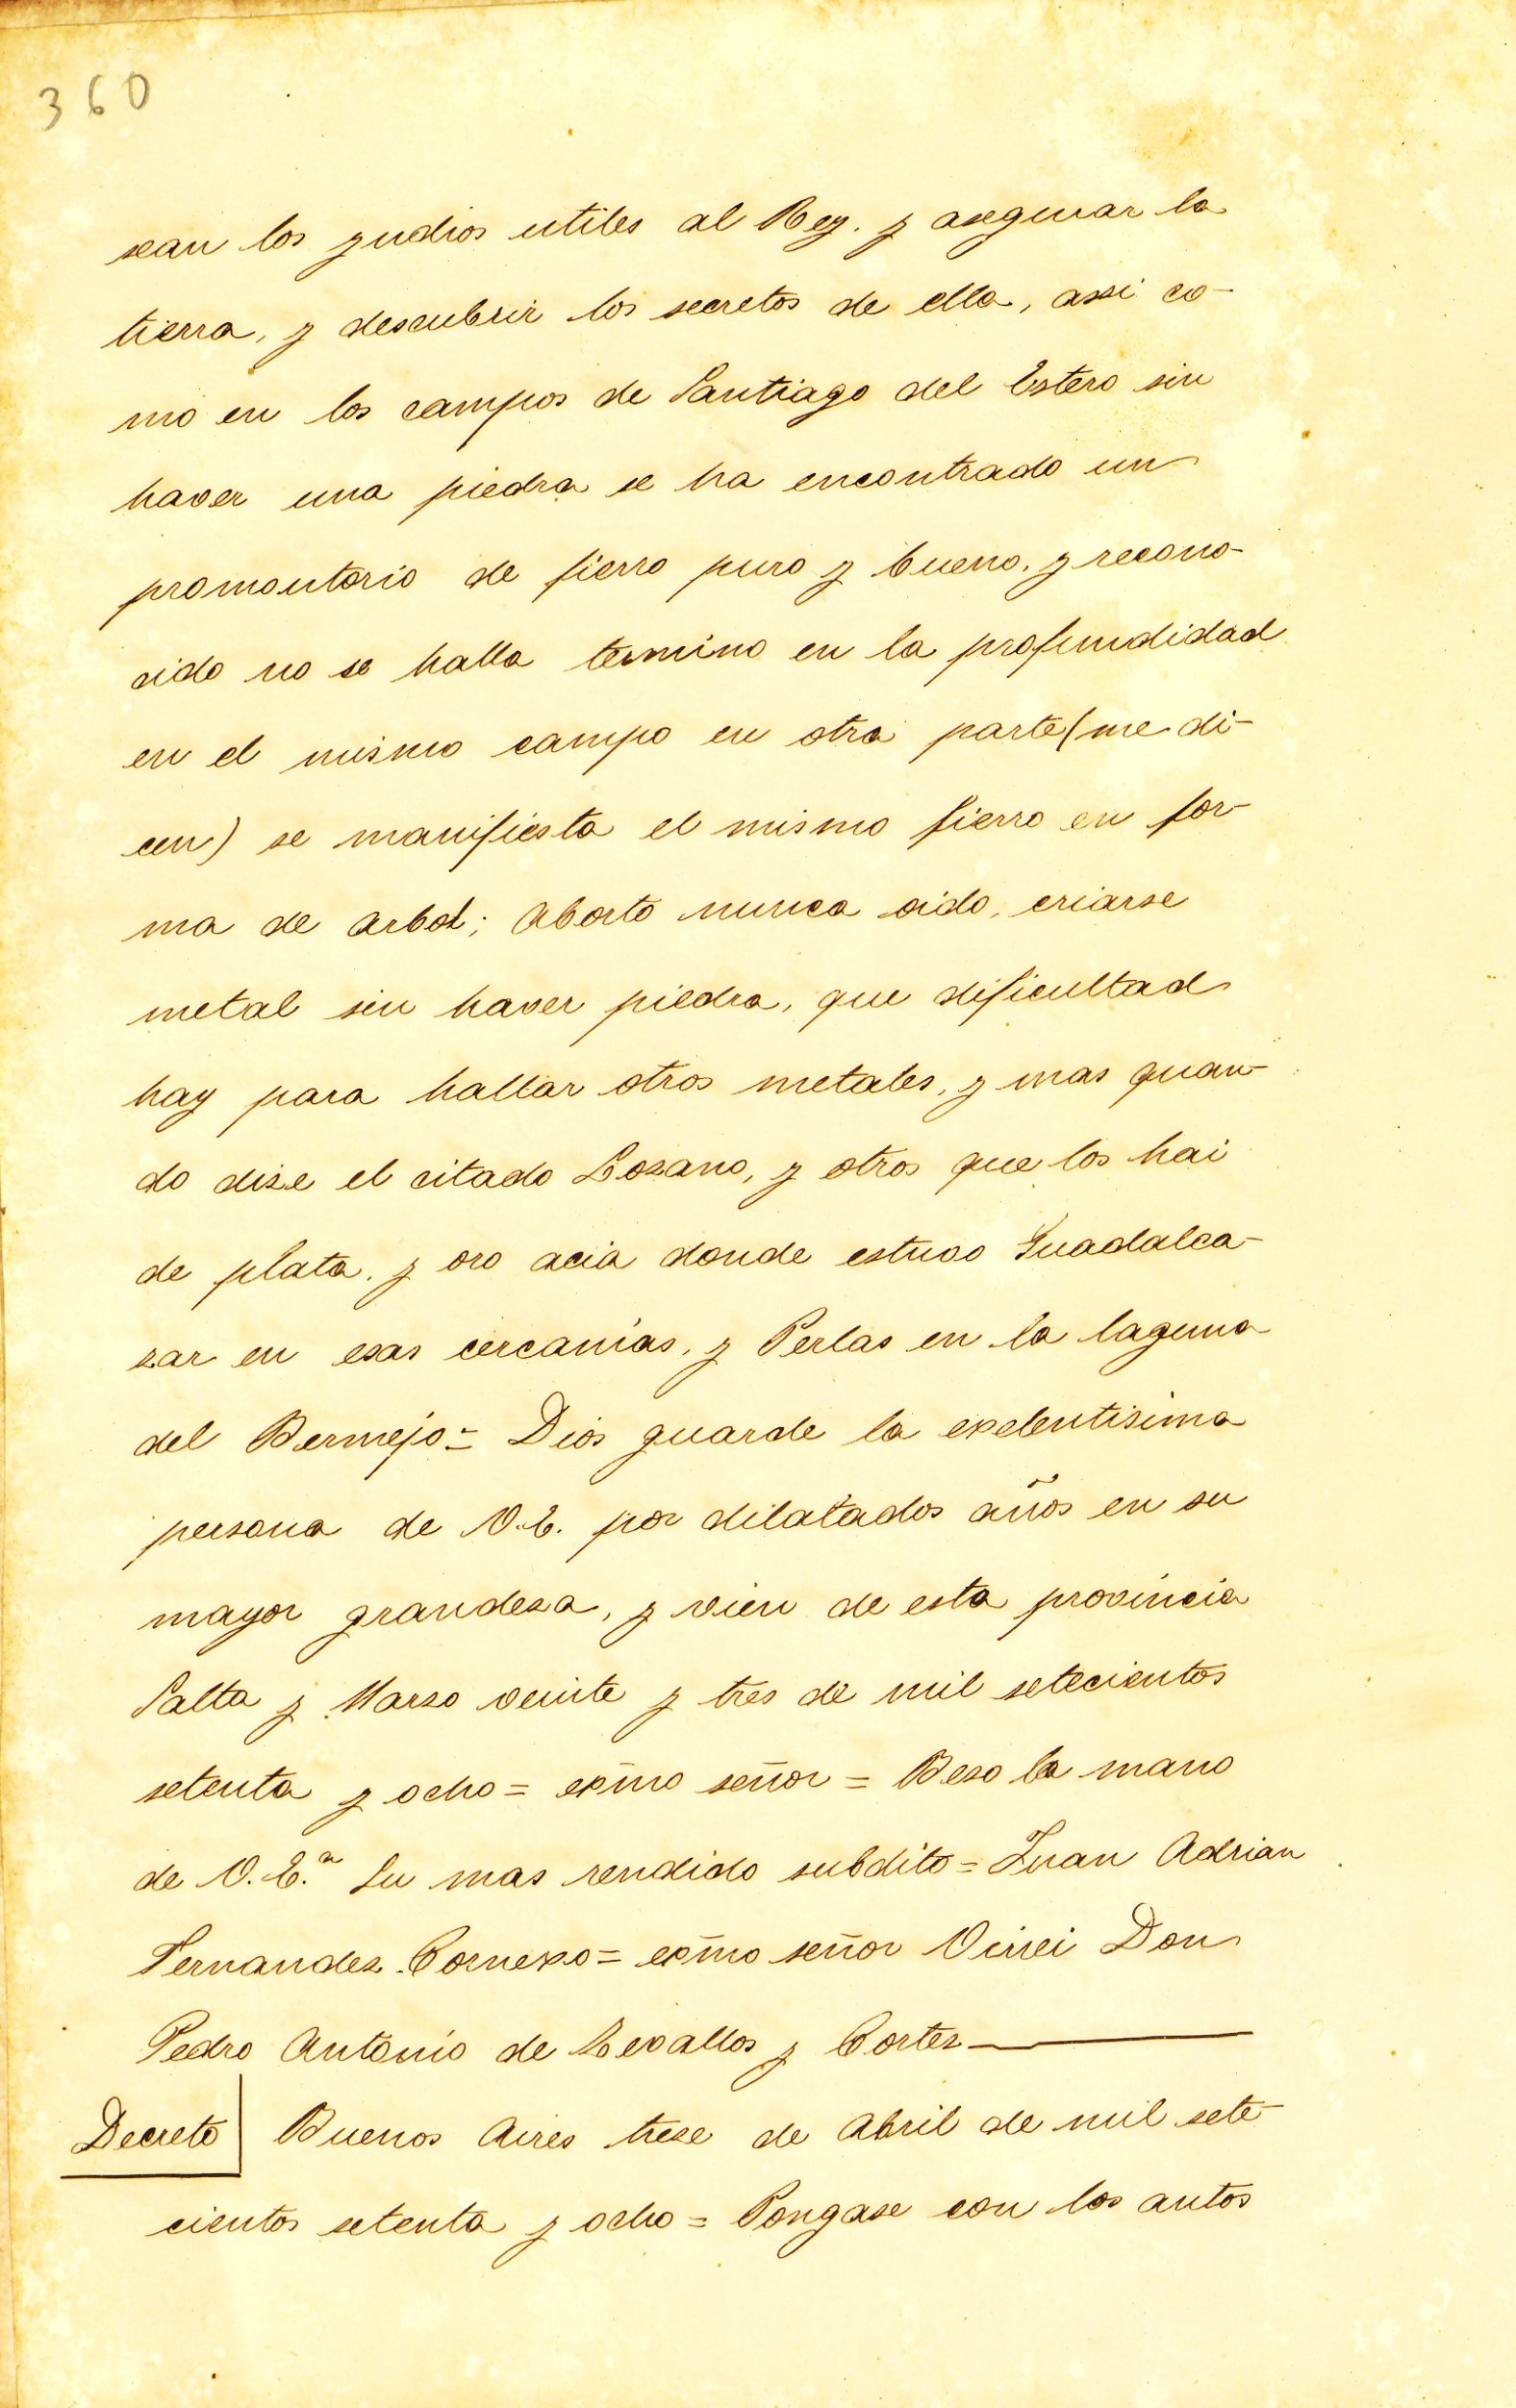 360
sean los yndios utiles al Rey. y asegurar la
tierra, y descubrir los secretos de ella, assi co-
mo en los campos de Santiago del Estero sin
haver una piedra se ha encontrado un
promontorio de fierro puro y bueno. y recono-
cido no se halla termino en la profundidad
en el mismo campo en otra parte (me di-
cen) se manifiesta el mismo fierro en for-
ma de arbol; Aborto nunca oido, criarse
metal sin haver piedra, que dificultad
hay para hallar otros metales, y mas quan-
do dize el citado Lozano, y otros que los hai
de plata, y oro acia donde estuvo Guadalca-
zar en esas cercanias, y Perlas en la laguna
del Bermejo = Dios guarde la exelentisima
persona de V.E. por dilatados años en su
mayor grandeza, y vien de esta provincia
Salta y Marzo veinte y tres de mil setecientos
setenta y ocho = exm̃o señor = Beso la mano
de V.E.ª Su mas rendido subdito = Juan Adrian
Fernandez Cornexo = exm̃o señor Virrei Don
Pedro Antonio de Zevallos y Cortez
Decreto Buenos Aires treze de Abril de mil sete-
cientos setenta y ocho = Pongase con los autos